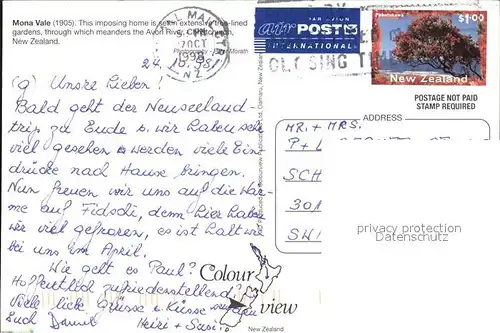 Mona Vale (1905). This imposing home is set in extensive tree-lined
gardens, through which meanders the Avon River, Christchurch,
New Zealand.
Photography - Morath
24.10.98
MAIL CTR
5 PM
20 OCT
1998
NZ
air POST
INTERNATIONAL
CLOSING TIME
Pohutukawa
$1.00
New Zealand
POSTAGE NOT PAID
STAMP REQUIRED
(9) Unsre Lieben!
Bald geht der Neuseeland-
trip zu Ende u. wir haben sehr
viel gesehen u. werden viele Ein-
drücke nach Hause bringen.
Nun freuen wir uns auf die Wär-
me auf Fidschi, denn hier haben
wir viel gefroren, es ist kalt wie
bei uns im April.
Wie geht es Paul?
Hoffentlich zufriedenstellend.
Viele liebe Grüsse u. Küsse senden
Euch
Heiri + Susi
ADDRESS
MR. + MRS.
P + L
SCH
301
SW
privacy protection
Datenschutz
Colour
view
New Zealand